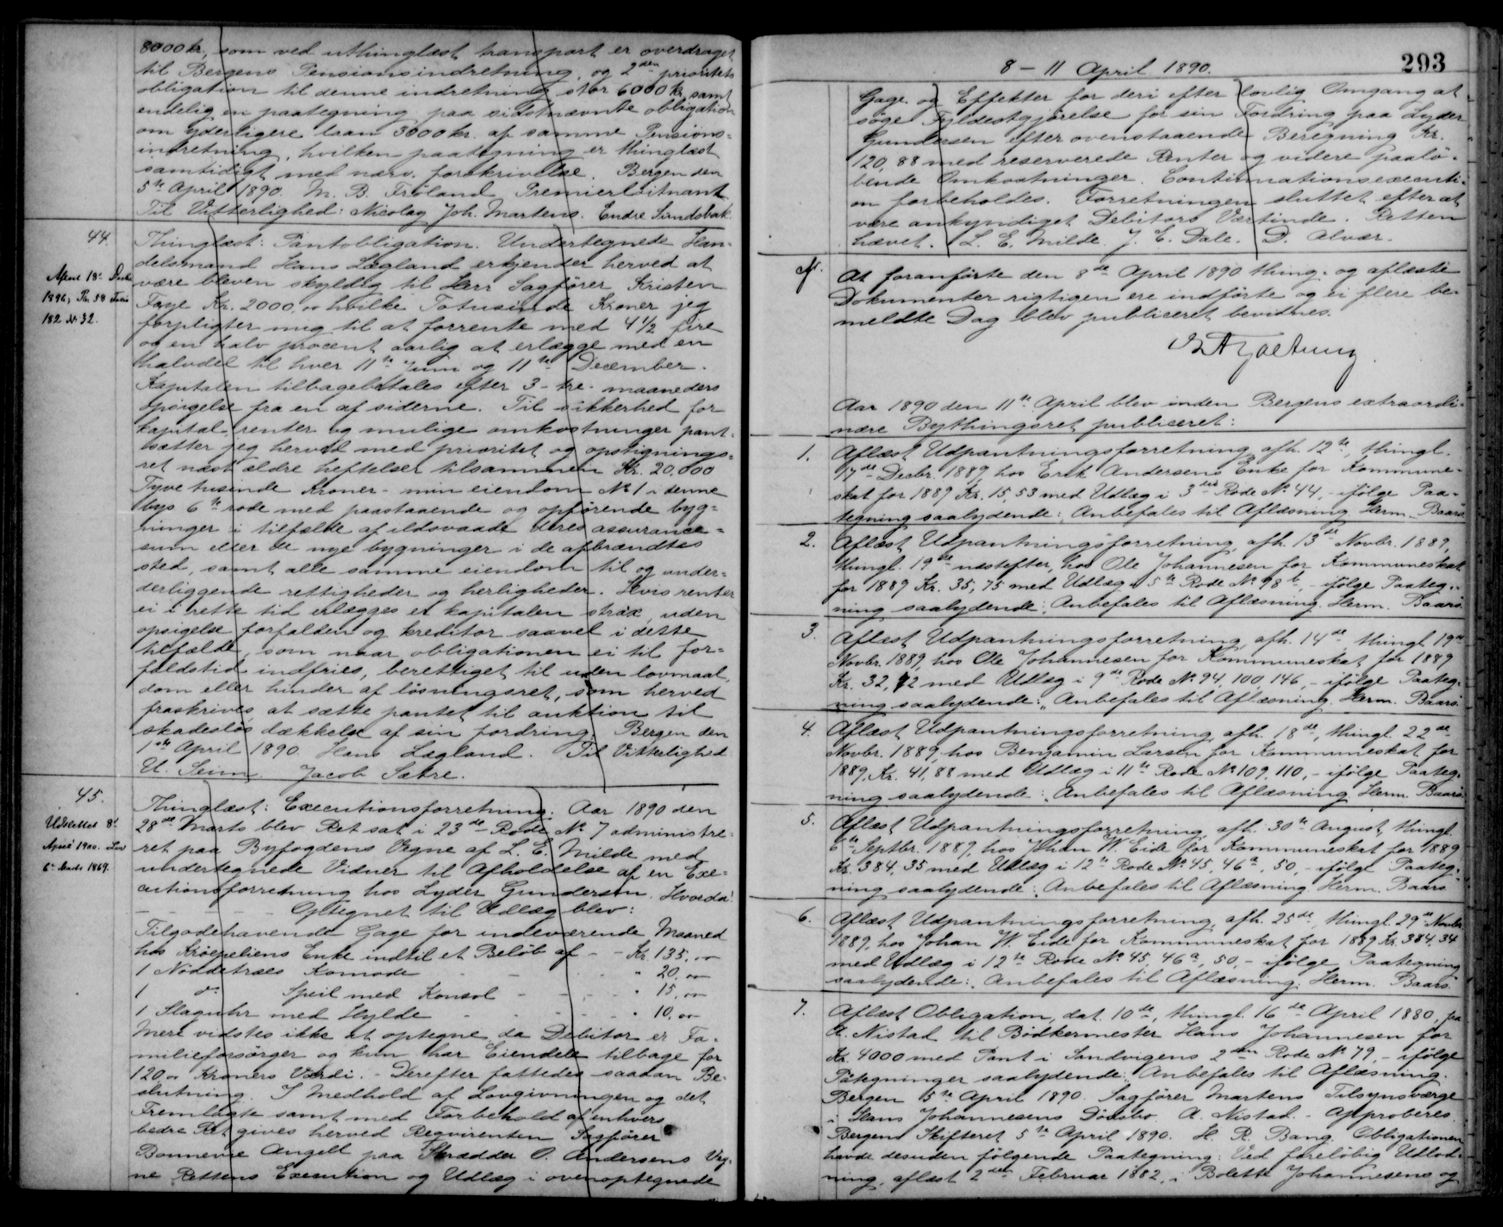 8000 kr, som ved uthinglæst transport er overdraget
til Bergens Pensionsindretning, og 2den prioritets
obligation til denne indretning stor 6000 kr, samt
endelig en paategning paa sidstnævnte obligation
om yderligere laan 3000 kr. af samme Pensions-
indretning, hvilken paategning er thinglæst
samtidigt med nærv. forskrivelse. Bergen den
5te April 1890. M. B. Frøland Premierløitnant
Til Vitterlighed: Nicolay Joh. Martens. Endre Sundsbak.
44.
Thinglæst: Pantobligation. Undertegnede Han-
delsmand Hans Lægland erkjender herved at
være bleven skyldig til Herr Sagfører Kristen
Faye Kr. 2000,00 hvilke Totusinde Kroner jeg
forpligter mig til at forrente med 4 1/2 fire
og en halv procent aarlig at erlægge med en
halvdel til hver 11te Juni og 11te December.
Kapitalen tilbagebetales efter 3 - tre - maaneders
opsigelse fra en af siderne. Til sikkerhed for
kapital, renter og mulige omkostninger pant-
sætter jeg herved med prioritet og opstignings-
ret næst ældre heftelser tilsammen Kr. 20,000
Tyve tusinde Kroner - min eiendom No 1 i denne
bys 6te rode med paastaaende og opførende byg-
ninger i tilfælde af ildsvaade deres assurance-
sum eller de nye bygninger i de afbrændtes
sted, samt alle samme eiendom til og under-
derliggende rettigheder og herligheder. Hvis renter
ei i rette tid erlægges er kapitalen strax, uden
opsigelse forfalden og kreditor saavel i dette
tilfælde, som naar obligationen ei til for-
faldstid indfries, berettiget til uden lovmaal,
dom eller hinder af løsningsret, som herved
fraskrives at sætte pantet til auktion til
skadesløs dækkelse af sin fordring. Bergen den
1ste April 1890. Hans Lægland. Til Vitterlighed
U. Seim Jacob Sætre.
45.
Udslettet 8.
April 1900.
Thinglæst: Executionsforretning: Aar 1890 den
28de Marts blev Ret sat i 23de Rode No 7 administre-
ret paa Byfogdens Vegne af L. E. Milde med
undertegnede Vidner til Afholdelse af en Exe-
cutionsforretning hos Lyder Gundersen. Hvorda!
- - - Optegnet til Udlæg blev:
Tilgodehavende Gage for indeværende Maaned
hos Krøepeliens Enke indtil et Beløb af - - Kr. 135,00
1 Nøddetræes Komode - " 20,00
1 do Speil med Konsol - - - " 15,00
1 Slaguhr med Hylde - - - " 10,00
Mere vidstes ikke at optegne da Debitor er Fa-
milieforsørger og kun har Eiendele tilbage for
120,00 Kroners Værdi. - Derefter fattedes saadan Be-
slutning. I Medhold af Lovgivningen og det
Fremlagte samt med Forbehold af enhvers
bedre Ret gives herved Reqvirenten Sagfører
Bonnevie Angell paa Skrædder O. Andersens Veg-
ne Rettens Execution og Udlæg i ovenoptegnede
8 - 11 April 1890.
293
Gage og Effekter for deri efter lovlig Omgang at
søge Fyldestgjørelse for sin Fordring paa Lyder
Gundersen efter ovenstaaende Beregning Kr.
120,88 med reserverede Renter og videre paalø-
bende Omkostninger. Continuationsexecuti-
on forbeholdes. Forretningen sluttet efter at
være ankyndiget Debitors Værtinde. Retten
hævet. L. E. Milde. J. E. Dale. D. Alvær.
At foranførte den 8de April 1890 thing- og aflæste
Dokumenter rigtigen ere indførte og ei flere be-
meldte Dag blev publiceret bevidnes.
Aar 1890 den 11te April blev inden Bergens extraordi-
nære Bythingsret publiceret:
1. Aflæst Udpantningsforretning afh. 12te, thingl.
17de Decbr. 1889, hos Erik Andersens Enke for Kommune-
skat for 1889 Kr. 15,53 med Udlæg i 3die Rode No 44, - ifølge Paa-
tegning saalydende: Anbefales til Aflæsning Herm. Baars
2. Aflæst Udpantningsforretning afh. 13de Novbr. 1889,
thingl. 19de næstefter, hos Ole Johannesen for Kommuneskat
for 1889 Kr. 35,75 med Udlæg i 5te Rode No 98b - ifølge Paateg-
ning saalydende: Anbefales til Aflæsning. Herm. Baars.
3. Aflæst Udpantningsforretning afh. 14de, thingl. 19de
Novbr. 1889, hos Ole Johannesen for Kommuneskat for 1889
Kr. 32,72 med Udlæg i 9de Rode No 94, 100, 146, - ifølge Paateg-
ning saalydende: Anbefales til Aflæsning. Herm. Baars.
4. Aflæst Udpantningsforretning afh. 18de, thingl. 22de
Novbr. 1889, hos Benjamin Larsen for Kommuneskat for
1889, Kr. 41,88 med Udlæg i 11te Rode No 109, 110, - ifølge Paateg-
ning saalydende: Anbefales til Aflæsning. Herm. Baars
5. Aflæst Udpantningsforretning, afh. 30te August, thingl.
6te Septbr. 1889, hos Johan W. Eide for Kommuneskat for 1889
Kr. 384,35 med Udlæg i 12te Rode No 45, 46a, 50, - ifølge Paateg-
ning saalydende: Anbefales til Aflæsning. Herm. Baars
6. Aflæst Udpantningsforretning, afh. 25de, thingl. 29de Novbr.
1889, hos Johan W. Eide for Kommuneskat for 1889 Kr. 384,34
med Udlæg i 12te Rode No 45, 46a, 50, - ifølge Paategning
saalydende: Anbefales til Aflæsning: Herm. Baars.
7. Aflæst Obligation, dat. 10de, thingl. 16de April 1880, fra
A. Nistad til Bødkermester Hans Johannesen for
Kr. 4000 med Pant i Sandvigens 2den Rode No 79, - ifølge
Påtegninger saalydende: Anbefales til Aflæsning.
Bergen 15te April 1890. Sagfører Martens Tilsynsværge
i Hans Johannesens Dødsbo. A. Nistad. - Approberes
Bergens Skifteret 5te April 1890. H. R. Bang. Obligationen
havde desuden følgende Paategning: Ved foreløbig Udlod-
ning, aflæst 2den Februar 1882, i Bolette Johannesens og